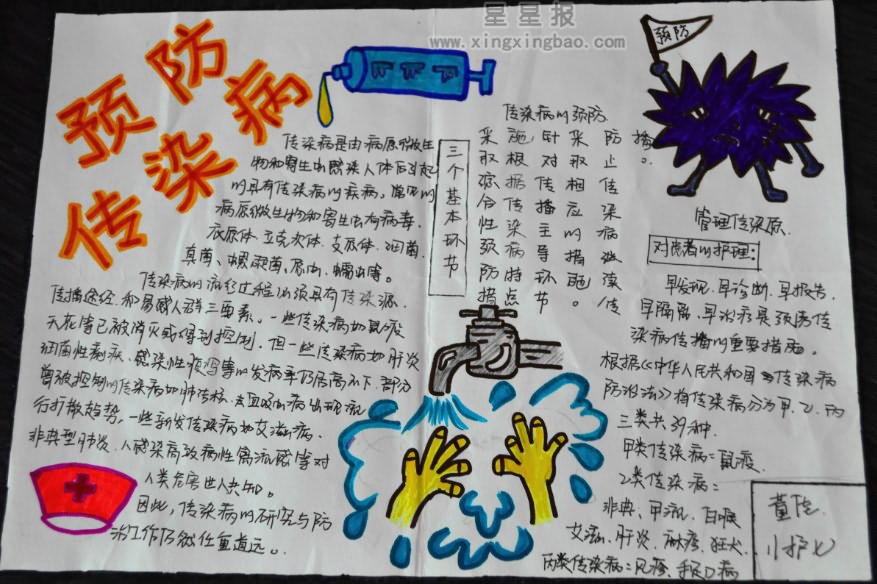 星星报
www.xingxingbao.com
预防
传染病
传染病是由病原微生
物和寄生虫感染人体后引起
的具有传染病的疾病，常见的
病原微生物和寄生虫有病毒、
衣原体、立克次体、支原体、细菌、
真菌、螺旋菌、原虫、蠕虫等。
传染病的流行过程必须具有传染源、
传播途经、和易感人群三要素。一些传染病如鼠疫
天花等已被消灭或得到控制，但一些传染病如肝炎
细菌性痢疾、感染性腹泻等的发病率仍居高不下，部分
曾被控制的传染病如肺结核、血吸虫病出现流
行扩散趋势，一些新发传染病如艾滋病、
非典型肺炎、人感染高致病性禽流感等对
人类危害世人共知。
因此，传染病的研究与防
治工作仍然任重道远。
三个基本环节
传染病的预防
措。
防止传染病继续传
采取相应的措施
针对传播主导环节。
施根据传染病特点
采取综合性预防措
预防
管理传染原、
对患者的护理：
早发现、早诊断、早报告、
早隔离、早治疗是预防传
染病传播的重要措施。
根据《中华人民共和国传染病
防治法》将传染病分为甲、乙、丙
三类共39种.
甲类传染病：鼠疫、
乙类传染病：
非典、甲流、白喉
艾滋、肝炎、麻疹、狂犬、
丙类传染病：风疹、手足口病